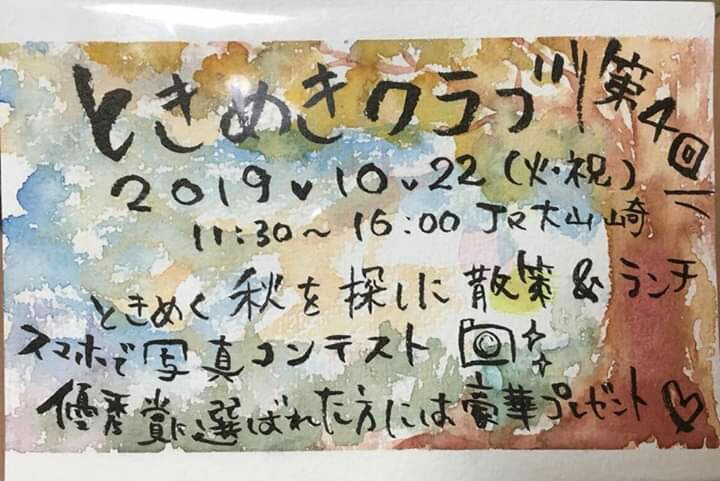 ときめきクラブ
第4回
2019.10.22(火・祝)
11:30〜16:00 JR大山崎
ときめく 秋を探しに散策&ランチ
スマホで写真コンテスト
優秀賞に選ばれた方には豪華プレゼント♡